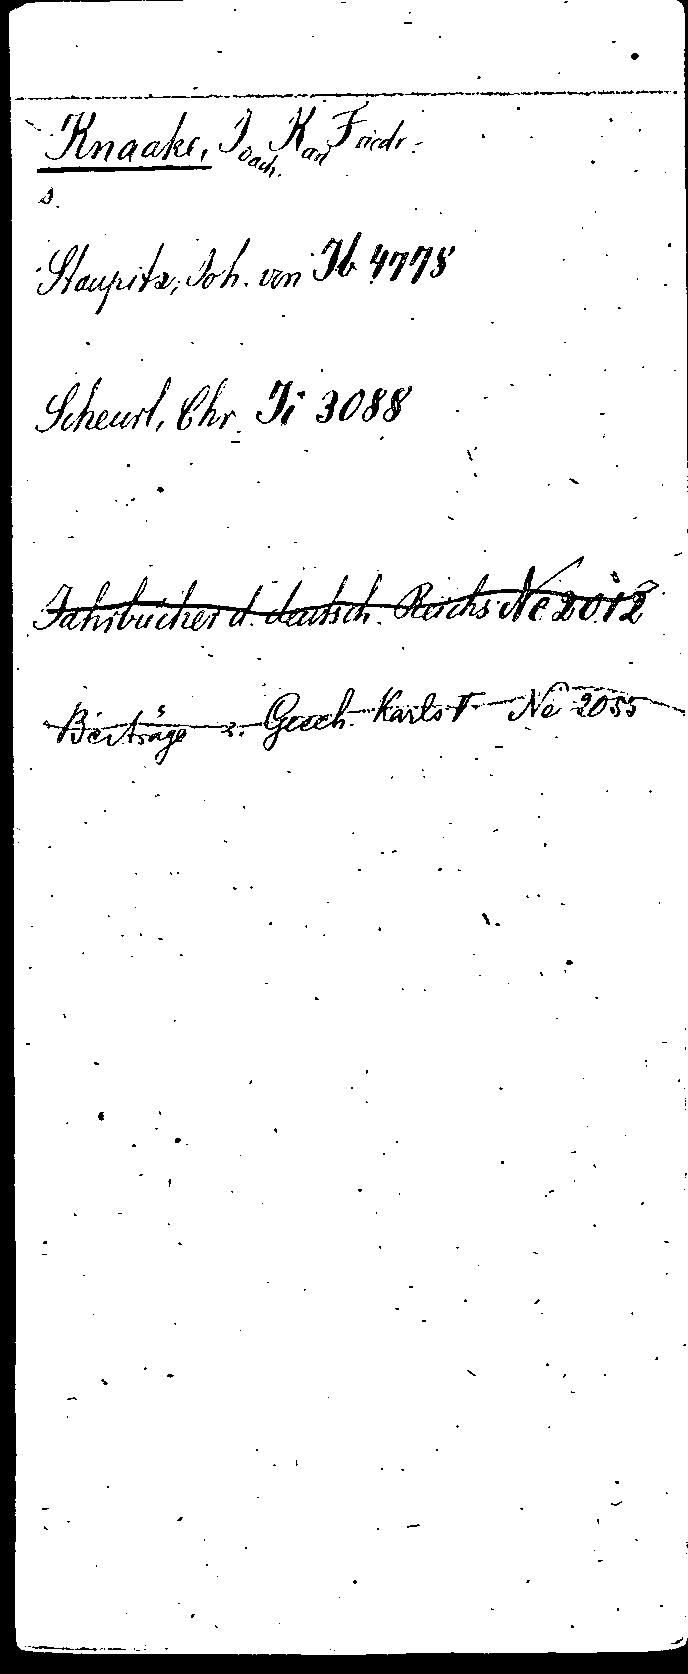 Knaake, Joach. Karl Friedr.
s.
Staupitz, Joh. von Ib 4778
Scheurl, Chr. Ii 3088
Jahrbücher d. deutsch. Reichs Ne 2012
Beiträge z. Gesch. Karls V Ne 2055